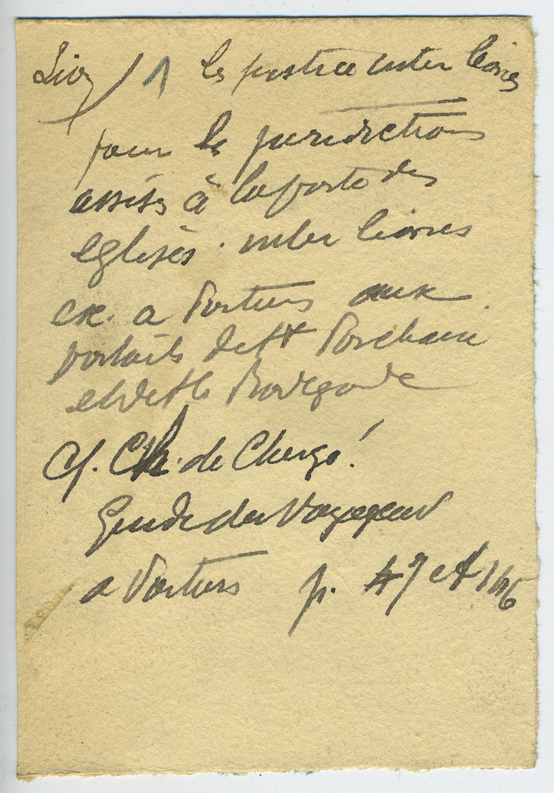 Lion / 1 la justice inter leones
pour les juridictions
assises à la porte des
églises. inter leones
ex. a Poitiers aux
portails de St Porchaire
et de Ste Radegonde
cf. Ch. de Chergé!
Guide du Voyageur
a Poitiers p. 47 et 146